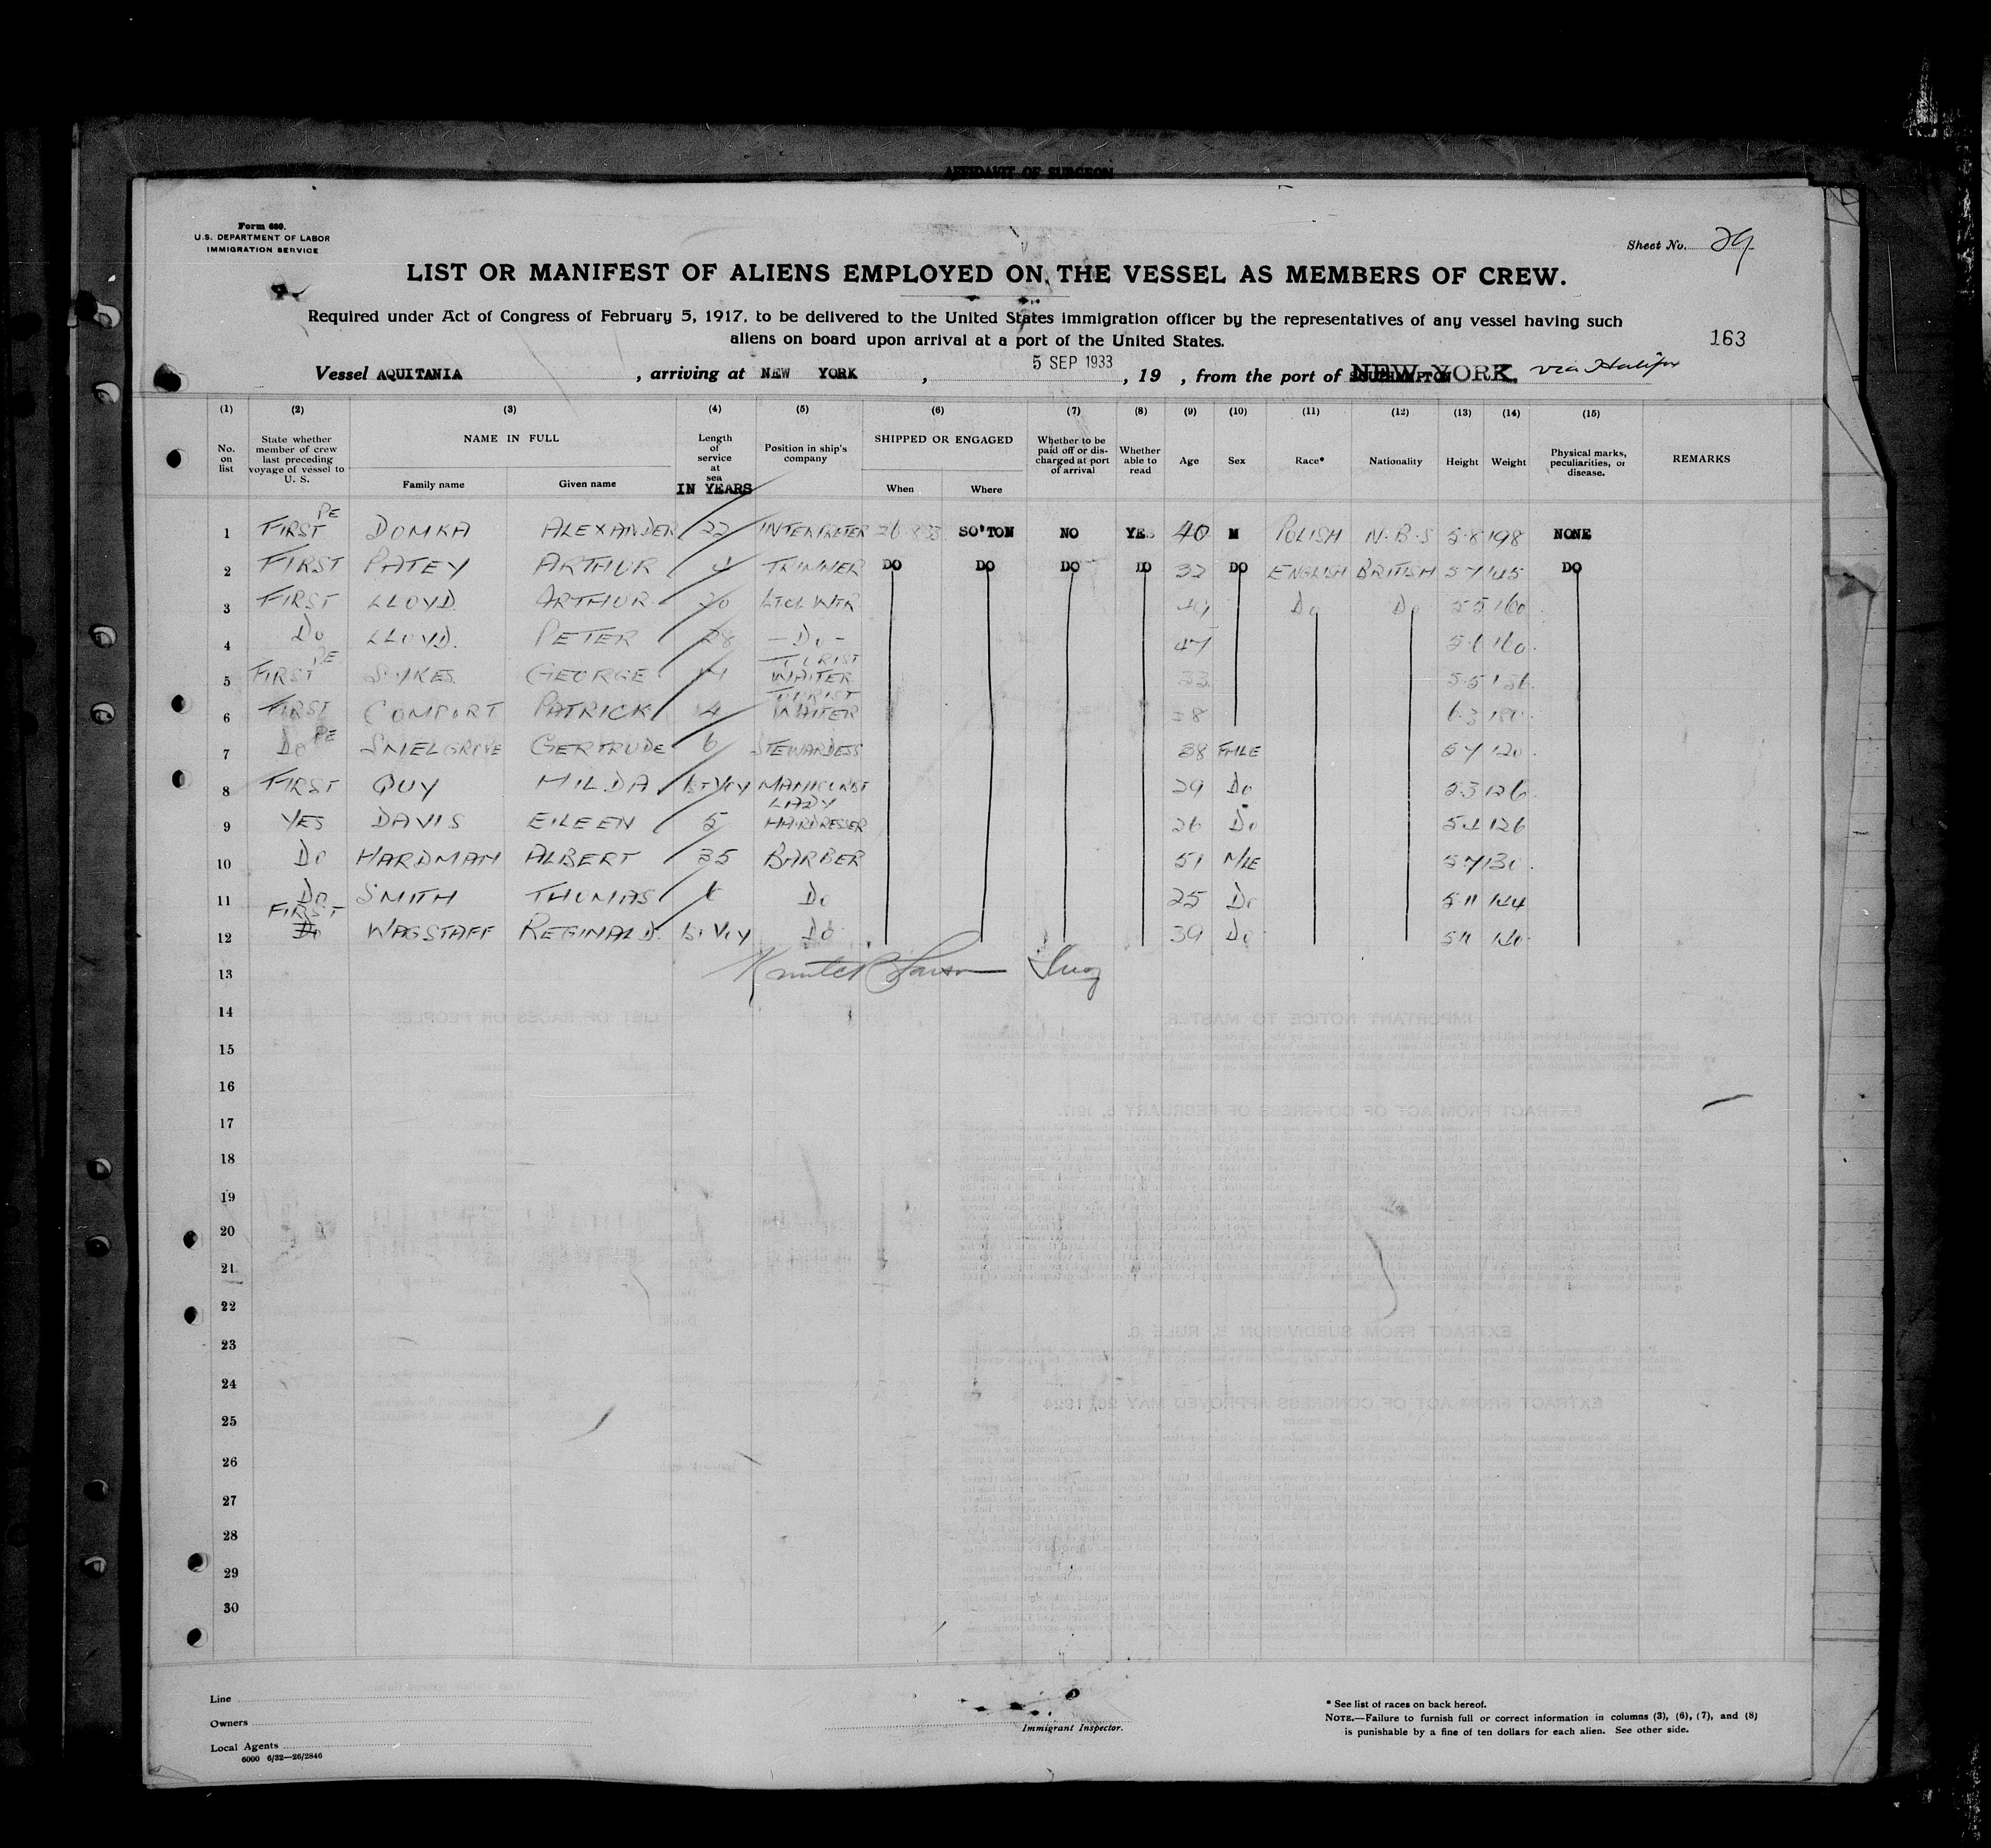 AFFIDAVIT OF SURGEON
Form 680.
U.S. DEPARTMENT OF LABOR
IMMIGRATION SERVICE
Sheet No. 29
LIST OR MANIFEST OF ALIENS EMPLOYED ON THE VESSEL AS MEMBERS OF CREW.
Required under Act of Congress of February 5, 1917, to be delivered to the United States immigration officer by the representatives of any vessel having such
aliens on board upon arrival at a port of the United States.
163
Vessel AQUITANIA , arriving at NEW YORK , 5 SEP 1933 , 19 , from the port of NEW YORK. via Halifax
(1) (2) (3) (4) (5) (6) (7) (8) (9) (10) (11) (12) (13) (14) (15)
No. on list State whether member of crew last preceding voyage of vessel to U. S. NAME IN FULL Family name Given name Length of service at sea IN YEARS Position in ship's company SHIPPED OR ENGAGED When Where Whether to be paid off or discharged at port of arrival Whether able to read Age Sex Race* Nationality Height Weight Physical marks, peculiarities, or disease. REMARKS
1 FIRST PE DOMKA ALEXANDER 22 INTERPRETER 26 8 33 SO'TON NO YES 40 M POLISH N.B.S 5.8 198 NONE
2 FIRST PATEY ARTHUR 4 TRIMMER DO DO DO DO 32 DO ENGLISH BRITISH 5 7 145 DO
3 FIRST LLOYD. ARTHUR 20 Do Do 5 5 160
4 Do LLOYD. PETER 28 - Do - 47 5.6 160
5 FIRST PE SYKES. GEORGE 14 TOURIST WAITER 33 5.5
6 FIRST COMFORT PATRICK 4 TOURIST WAITER 6.3 180
7 Do PE SNELGROVE GERTRUDE 6 STEWARDESS 38 FMLE 5 7 120
8 FIRST GUY HILDA 1ST VOY MANICURIST 29 Do 5.3 126
9 YES DAVIS EILEEN 5 LADY HAIRDRESSER 26 Do 126
10 Do HARDMAN ALBERT 35 BARBER 51 MLE 5 7 130
11 Do SMITH THOMAS Do 25 Do 5 11 144
12 FIRST Do WAGSTAFF REGINALD. 1ST VOY Do 39 Do 5 11 140
13
14
15
16
17
18
19
20
21
22
23
24
25
26
27
28
29
30
Line
Owners
Local Agents
6000 6/32—26/2846
Immigrant Inspector.
* See list of races on back hereof.
NOTE.—Failure to furnish full or correct information in columns (3), (6), (7), and (8)
is punishable by a fine of ten dollars for each alien. See other side.